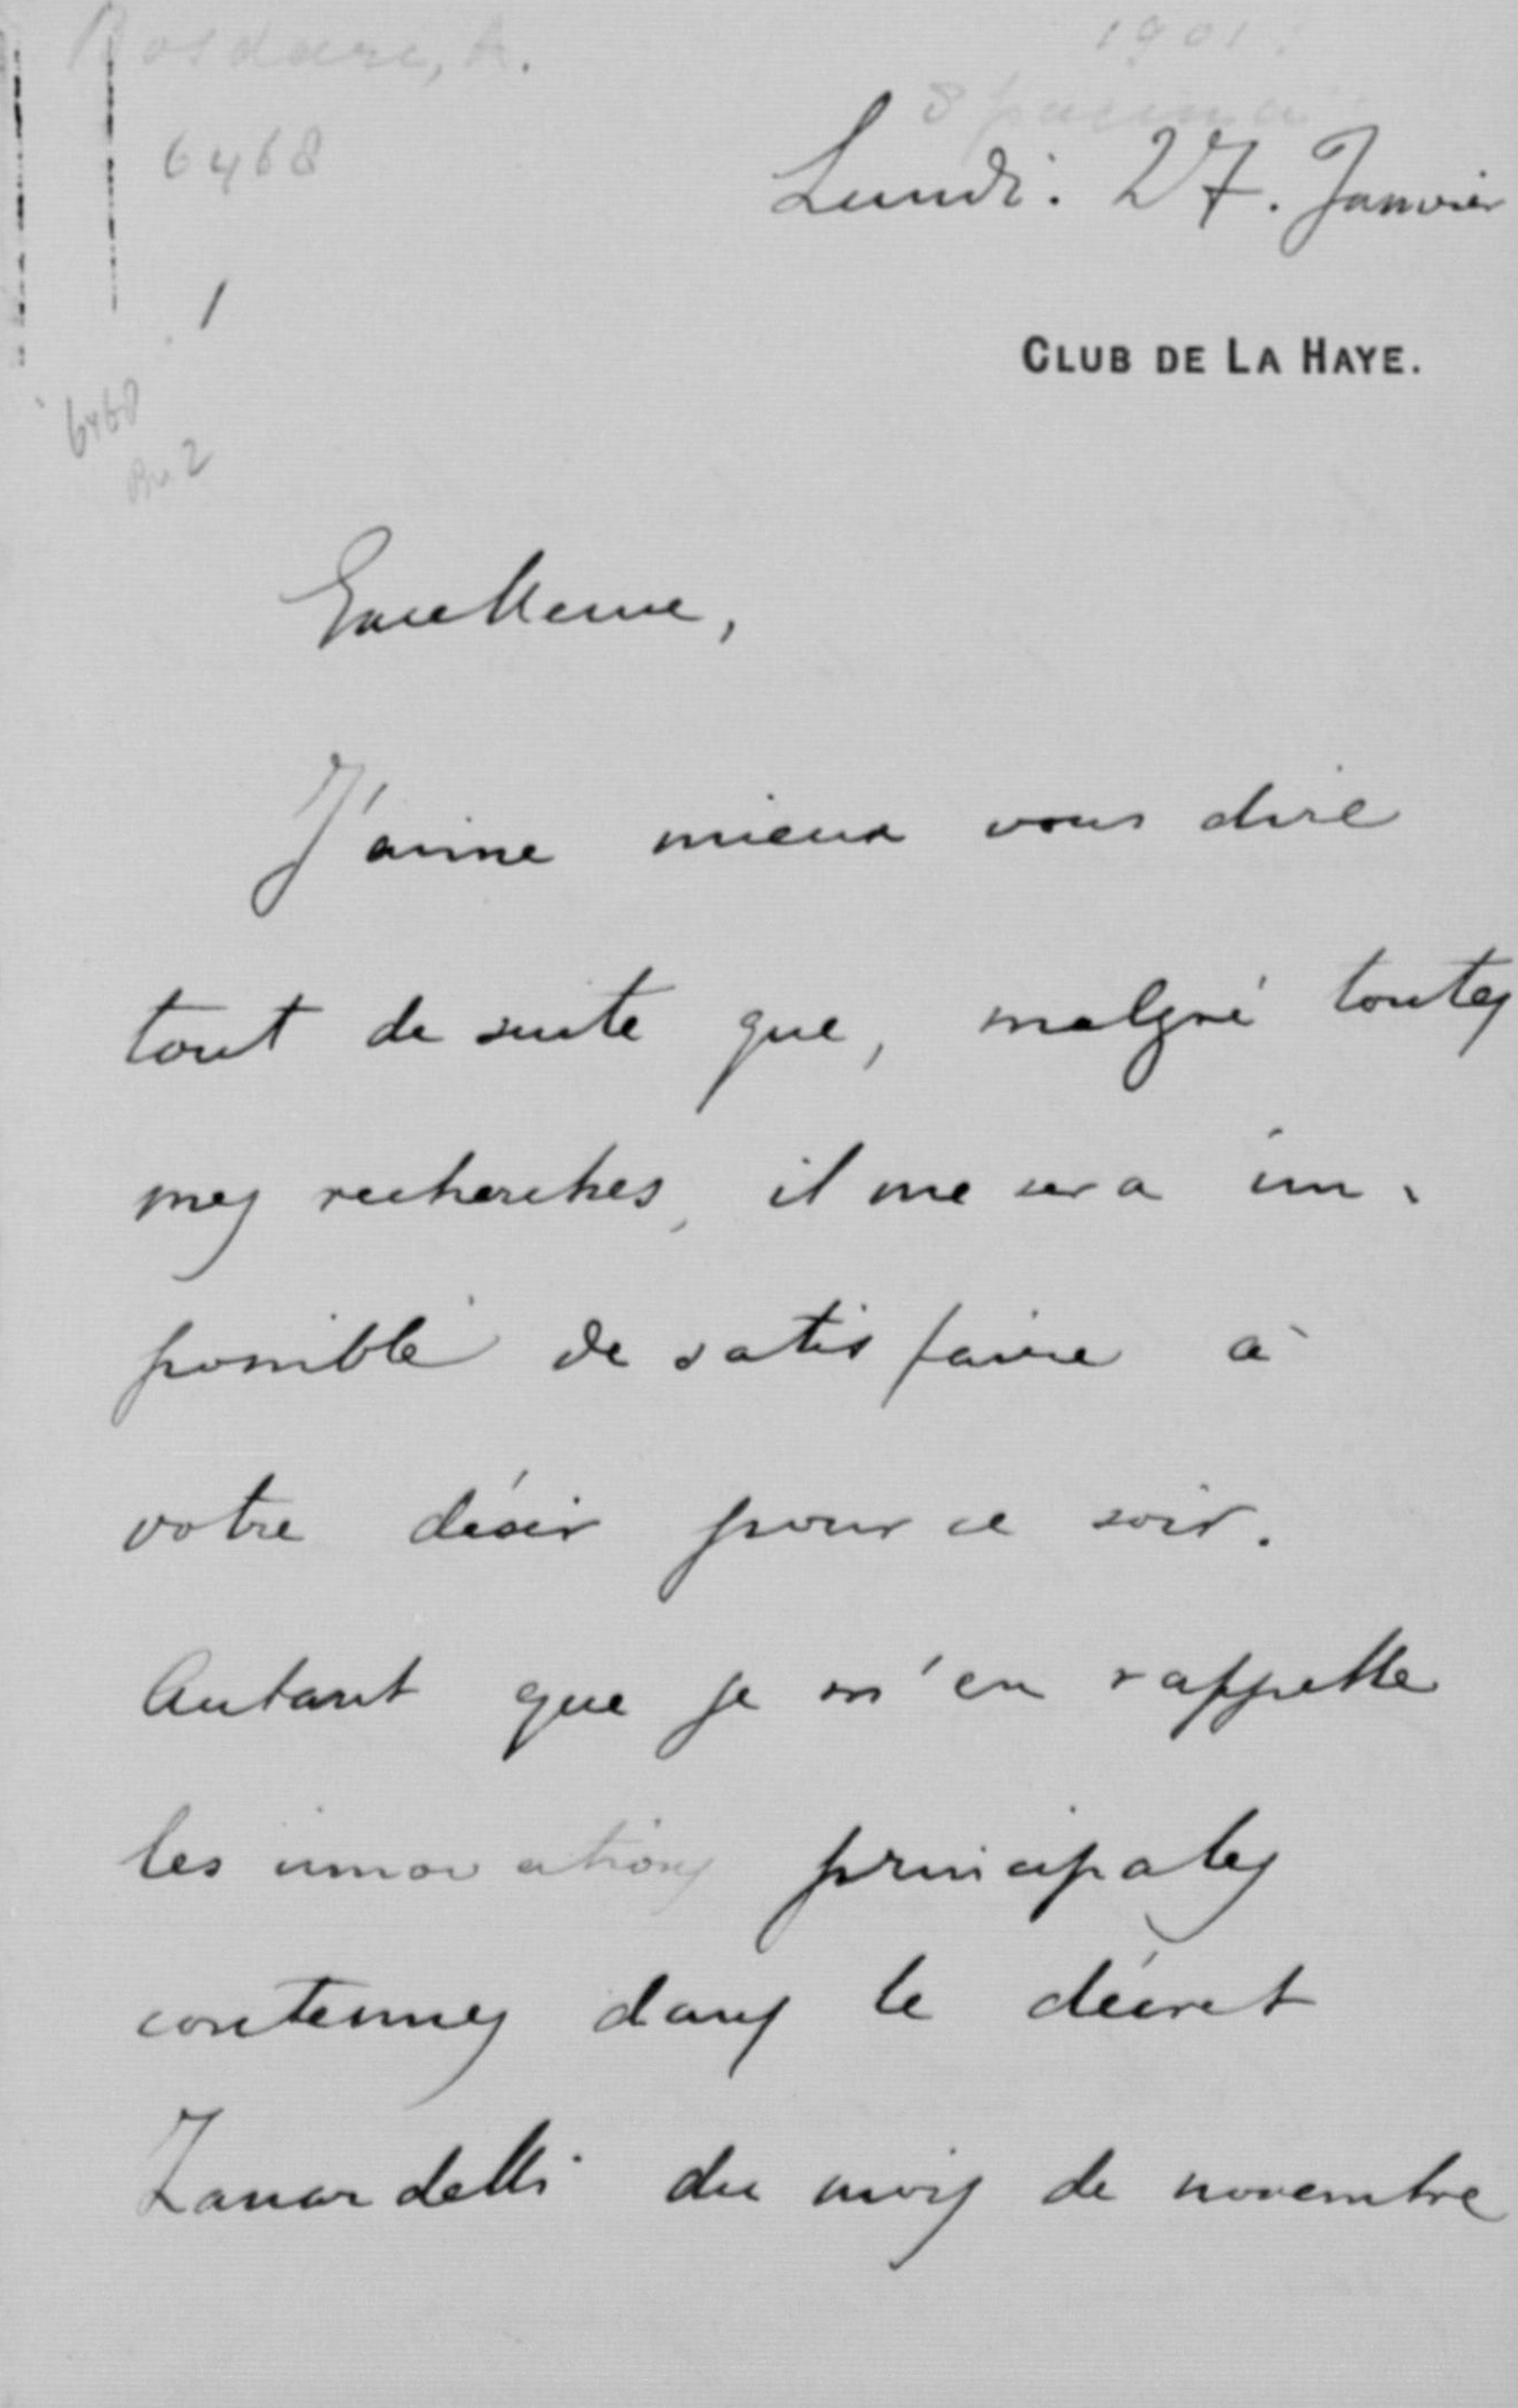 1901
6468
Lundi. 27. Janvier
1
CLUB DE LA HAYE.
6468
2
Excellence,
J'aime mieux vous dire
tout de suite que, malgré toutes
mes recherches, il me sera im-
possible de satisfaire à
votre désir pour ce soir.
Autant que je m'en rappelle
les innovations principales
contenues dans le décret
Zanardelli du mois de novembre